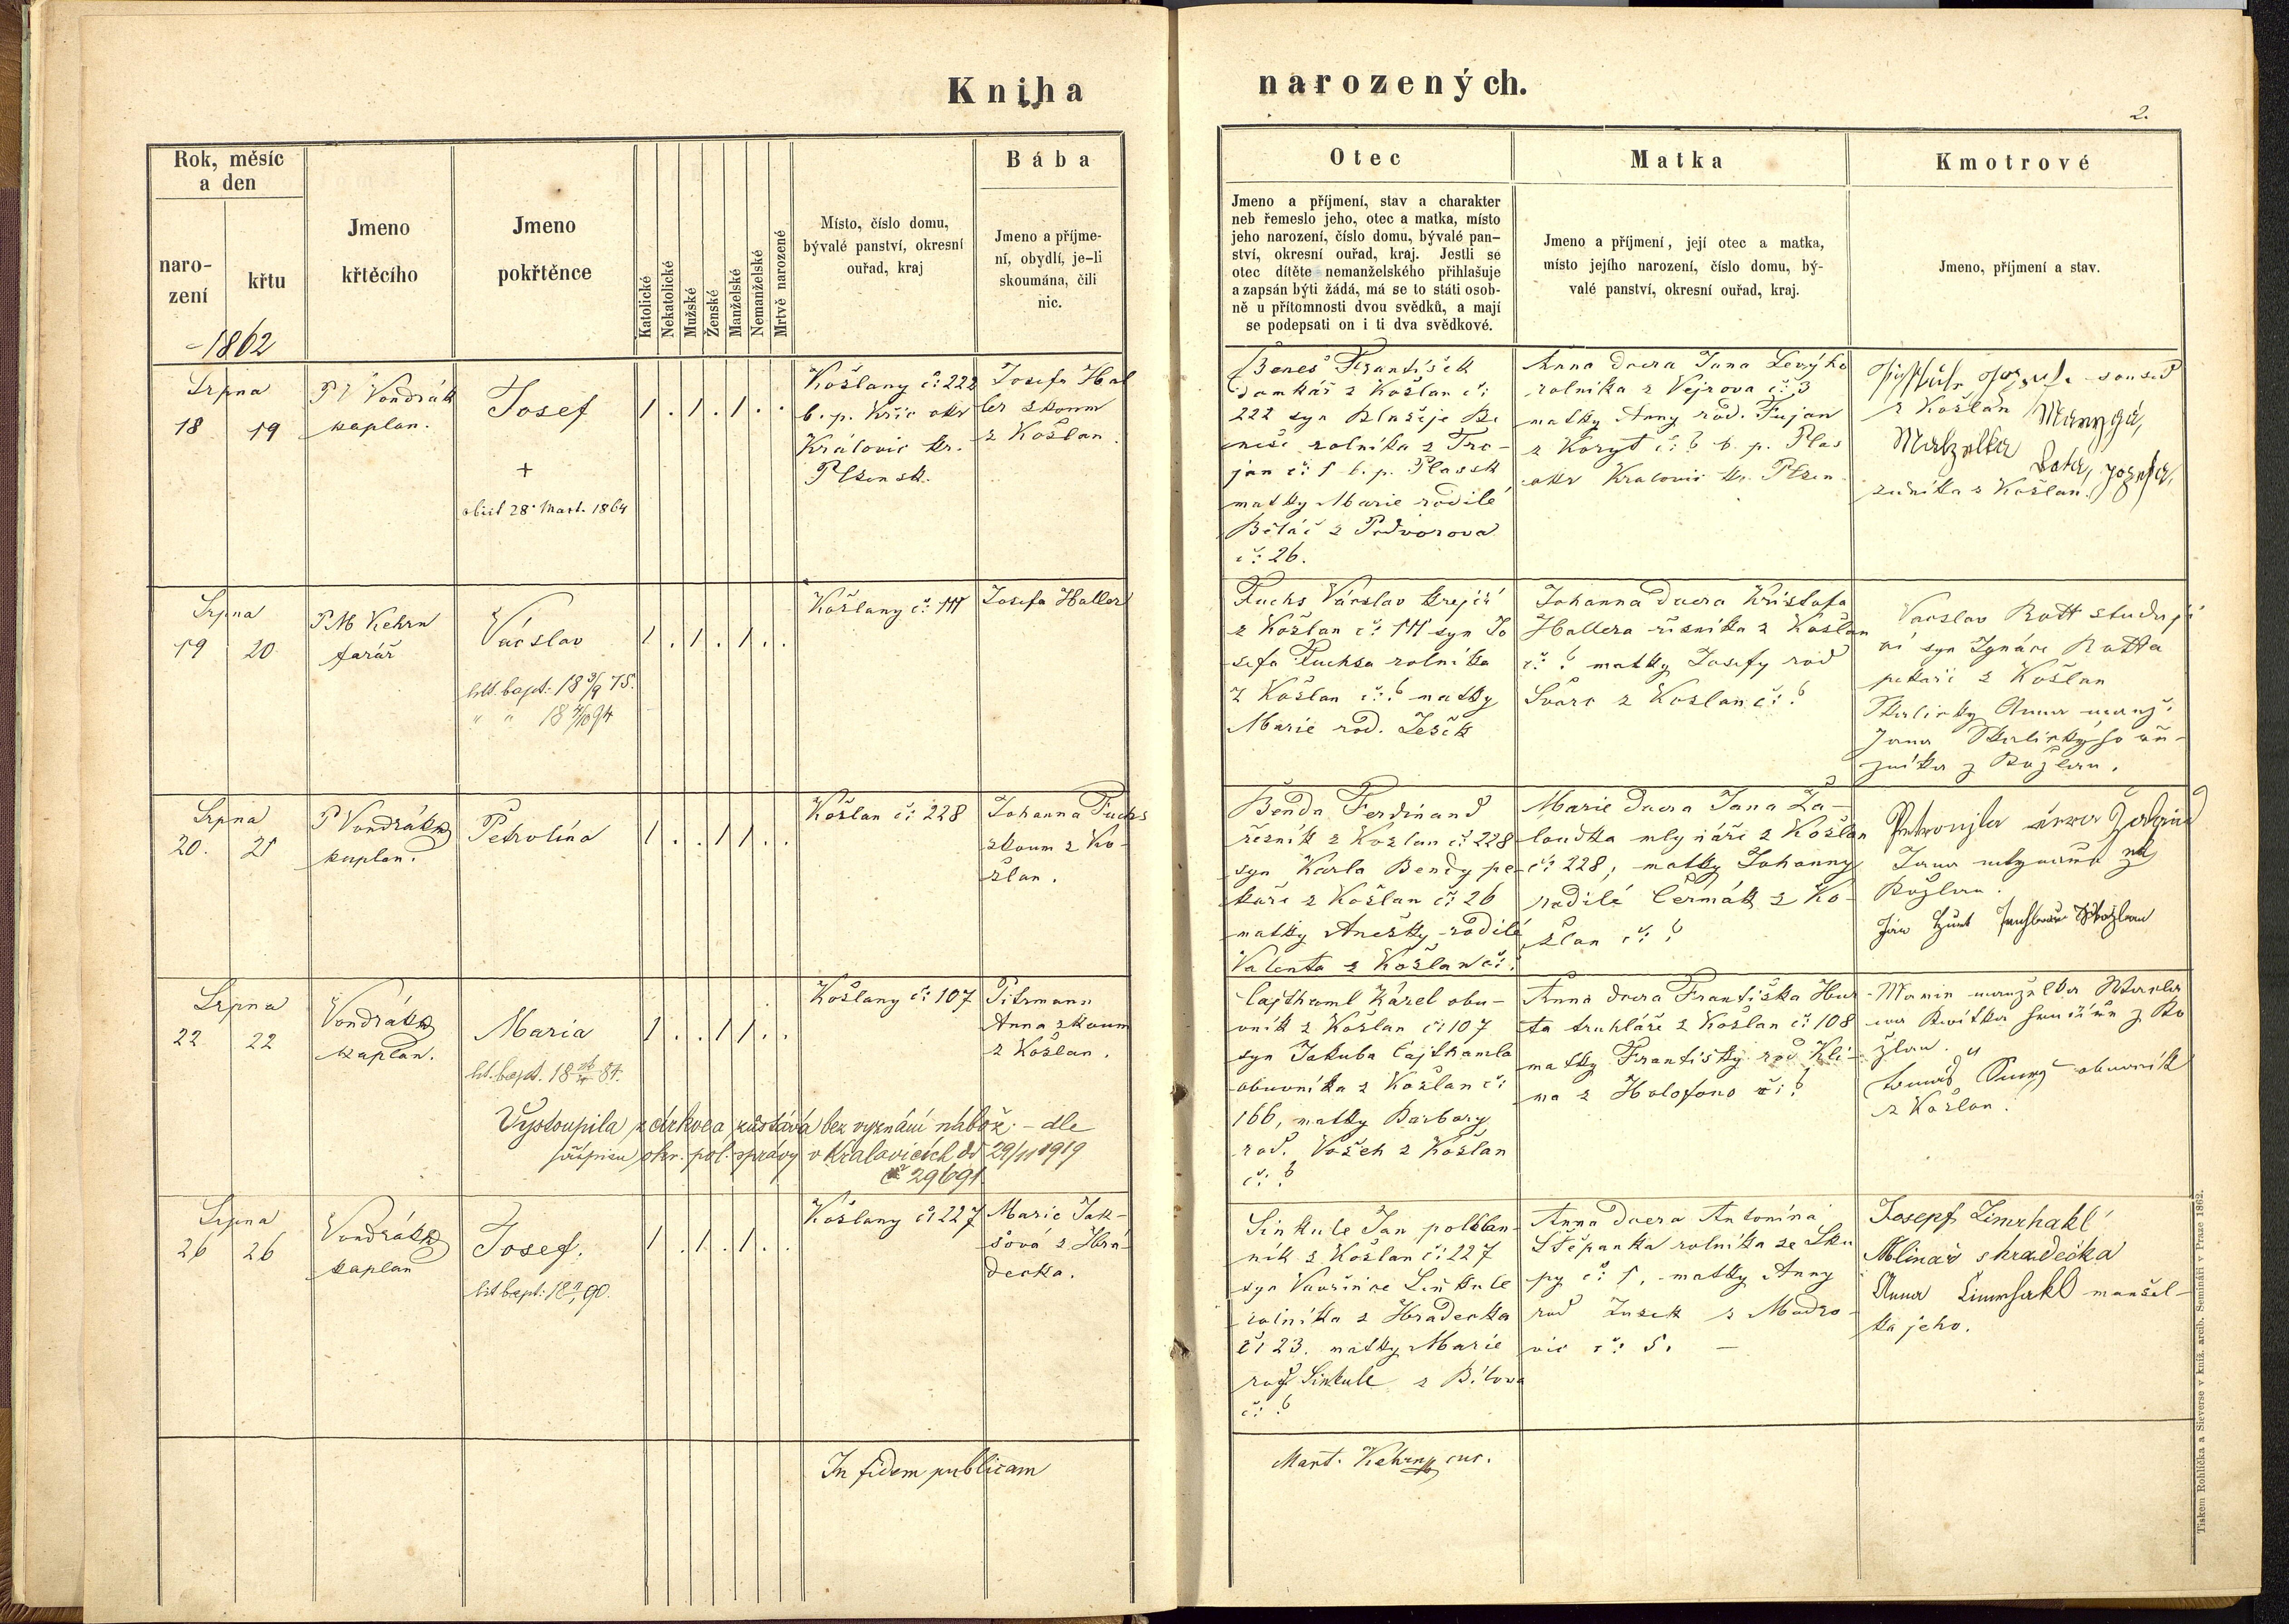 Kniha
narozených.
2.
Rok, měsíc
a den
naro-
zení
křtu
1862
Jmeno
křtěcího
Jmeno
pokřtěnce
Katolické
Nekatolické
Mužské
Ženské
Manželské
Nemanželské
Mrtvě narozené
Místo, číslo domu,
bývalé panství, okresní
ouřad, kraj
Bába
Jmeno a příjme-
ní, obydlí, je-li
skoumána, čili
nic.
Otec
Jmeno a příjmení, stav a charakter
neb řemeslo jeho, otec a matka, místo
jeho narození, číslo domu, bývalé pan-
ství, okresní ouřad, kraj. Jestli se
otec dítěte nemanželského přihlašuje
a zapsán býti žádá, má se to státi osob-
ně u přítomnosti dvou svědků, a mají
se podepsati on i ti dva svědkové.
Matka
Jmeno a příjmení, její otec a matka,
místo jejího narození, číslo domu, bý-
valé panství, okresní ouřad, kraj.
Kmotrové
Jmeno, příjmení a stav.
Srpna
18 19
Vondrák
kaplan.
Josef
+
obiit 28. Mart. 1864
1 . 1 . 1 . .
Kožlany č: 222
b. p. Křic okr
Kralovic kr.
Plzensk.
Josefa Hal
ler zkoum
z Kožlan.
Beneš František
domkář z Kožlan č:
222 syn Blažeje Be
neše rolníka z Tro-
jan č: 1 b. p. Plassk
matky Marie rodilé
Běláč z Podvorova
č: 26.
Anna dcera Jana Levýho
rolníka z Vejrova č: 3
matky Anny rod. Fujan
z Koryt č: ? b. p. Plas
okr Kralovic kr. Plzen
soused
z Kožlan
zedníka z Kožlan.
Srpna
19 20
P M Kehrn
farář
Václav
litt. bapt. 18 3/9 75.
" " 18 4/10 94
1 . 1 . 1 . .
Kožlany č: 111
Josefa Haller
Fuchs Václav krejčí
z Kožlan č: 111 syn Jo
sefa Fuchsa rolníka
z Kožlan č: ? matky
Marie rod. Ješek
Johanna dcera Kristofa
Hallera řezníka z Kožlan
č: ? matky Josefy rod
Švarc z Kožlan č: ?
Vacslav Rott studují
cí syn Ignáce Rotta
pekaře z Kožlan
Skalicky Anna manž.
Jana Skalickýho
z Kožlan.
Srpna
20. 21
P Vondrák
kaplan.
Petrolina
1 . . 1 1 . .
Kožlan č: 228
Johanna Fuchs
zkoum z Ko-
žlan.
Benda Ferdinand
řezník z Kožlan č: 228
syn Karla Bendy pe-
kaře z Kožlan č: 26
matky Anežky rodilé
Valenta z Kožlan č:
Marie dcera Jana Ža-
loudka mlynáře z Kožlan
č: 228, matky Johanny
rodilé Čermák z Ko-
žlan č: ?
Jana
Kožlan.
Srpna
22 22
Vondrák
kaplan.
Maria
lit. bapt. 18 84.
1 . . 1 1 . .
Kožlany č: 107
Pitrmann
Anna zkoum
z Kožlan.
Vystoupila z církve a zůstává bez vyznání nábož. - dle
přípisu okr. pol. správy v Kralovicích dd 29/11 1919
č 29691
Cajthaml Karel obu-
vník z Kožlan č: 107
syn Jakuba Cajthamla
obuvníka z Kožlan č:
166, matky Barbory
rod. Vošek z Kožlan
č: ?
Anna dcera Františka Hur
ta truhláře z Kožlan č: 108
matky Františky rod Kli-
ma z Holofono č: ?
Marie manželka
z Ko
žlan.
Tomáš obuvník
z Kožlan.
Srpna
26 26
Vondrák
kaplan
Josef.
lit bapt: 90.
1 . 1 . 1 . .
Kožlany č: 227
Marie Jak-
šová z Hra-
decka.
Sinkule Jan poltlan-
ník z Kožlan č: 227
syn Vavřince Sinkule
rolníka z Hradecka
č: 23. matky Marie
rod Sinkule z Bílova
č: ?
Anna dcera Antonína
Štěpanka rolníka ze Sku
py č: 1, matky Anny
rod Zusek z Modro-
vic č: 5. —
Josepf Zimrhakl
Mlinař s hradečka
Anna Zimrhakl manžel-
ka jeho.
In fidem publicam
Mart. Kehrn cur.
Tiskem Rohlíčka a Sieverse v kníž. arcib. Semináři v Praze 1862.